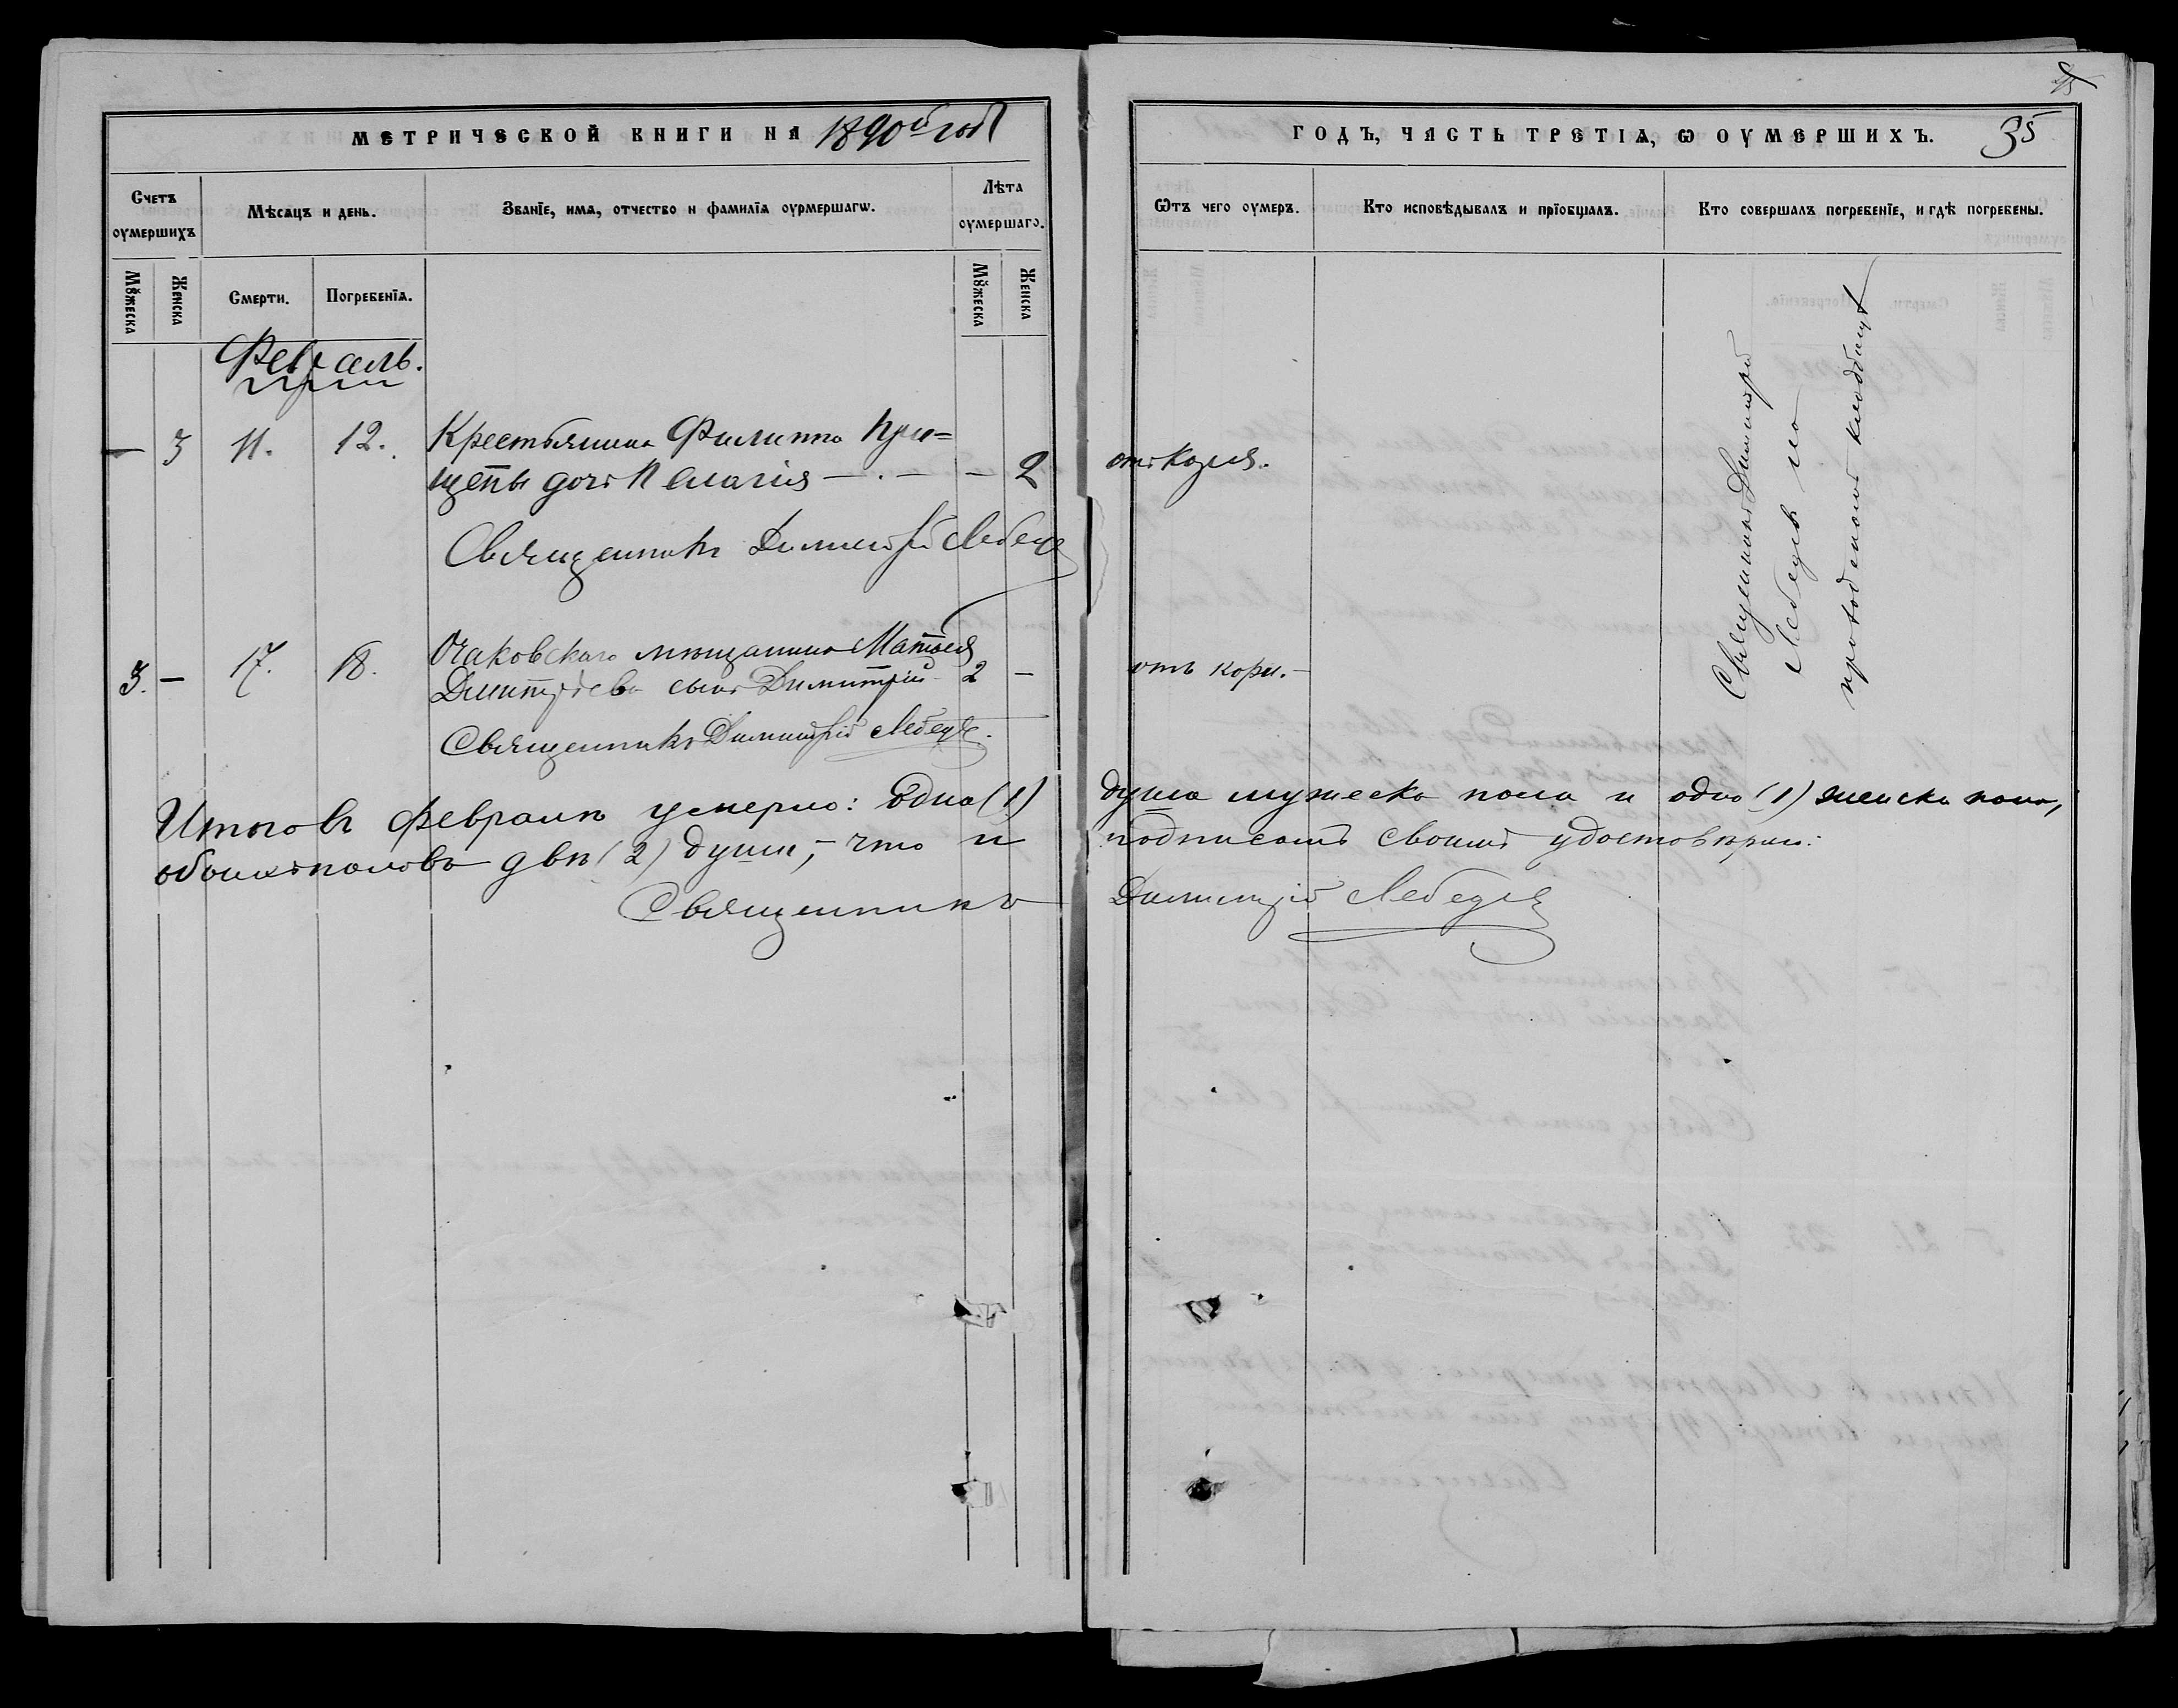 МЕТРИЧЕСКОЙ КНИГИ НА 1890й годъ
Счетъ оумершихъ
Мѣсяцъ и день.
Званіе, имя, отчество и фамилія оурмершагѡ.
Лѣта оумершаго.
Мꙋжеска
Женска
Смерти.
Погребенія.
Мꙋжеска
Женска
Февраль.
— 3 11. 12. Крестьянина Филиппа
дочь Пелагія — . — — 2
Священникъ Димитрій Лебедь
3. — 17. 18. Очаковскаго мѣщанина Матѳея
Димитріева сынъ Димитрій 2 —
Священникъ Димитрій Лебедь.
Итого въ Февралѣ умерло: Одна (1)
обоихъ половъ двѣ (2) души, – что и
Священникъ
35
ГОДЪ, ЧАСТЬ ТРЕТІѦ, Ѡ ОУМЕРШИХЪ. 35
Ѿтъ чего оумеръ.
Кто исповѣдывалъ и пріобщалъ.
Кто совершалъ погребеніе, и гдѣ погребены.
отъ
отъ кори. –
Священникъ Димитрій
Лебедь на
приходскомъ кладбищѣ
душа мужеска пола и одна (1) женска пола,
подписомъ своимъ удостовѣряю:
Димитрій Лебедь